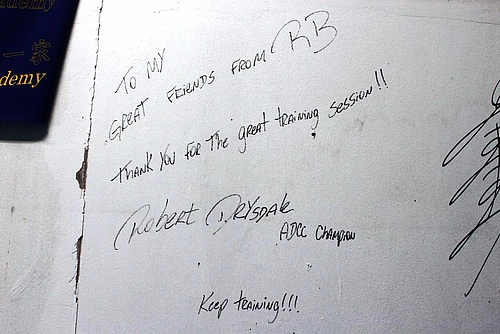 ademy
一家
demy
To My
Great Friends From RB
Thank You For The great training session!!
Robert Drysdale
ADCC Champion
Keep training!!!